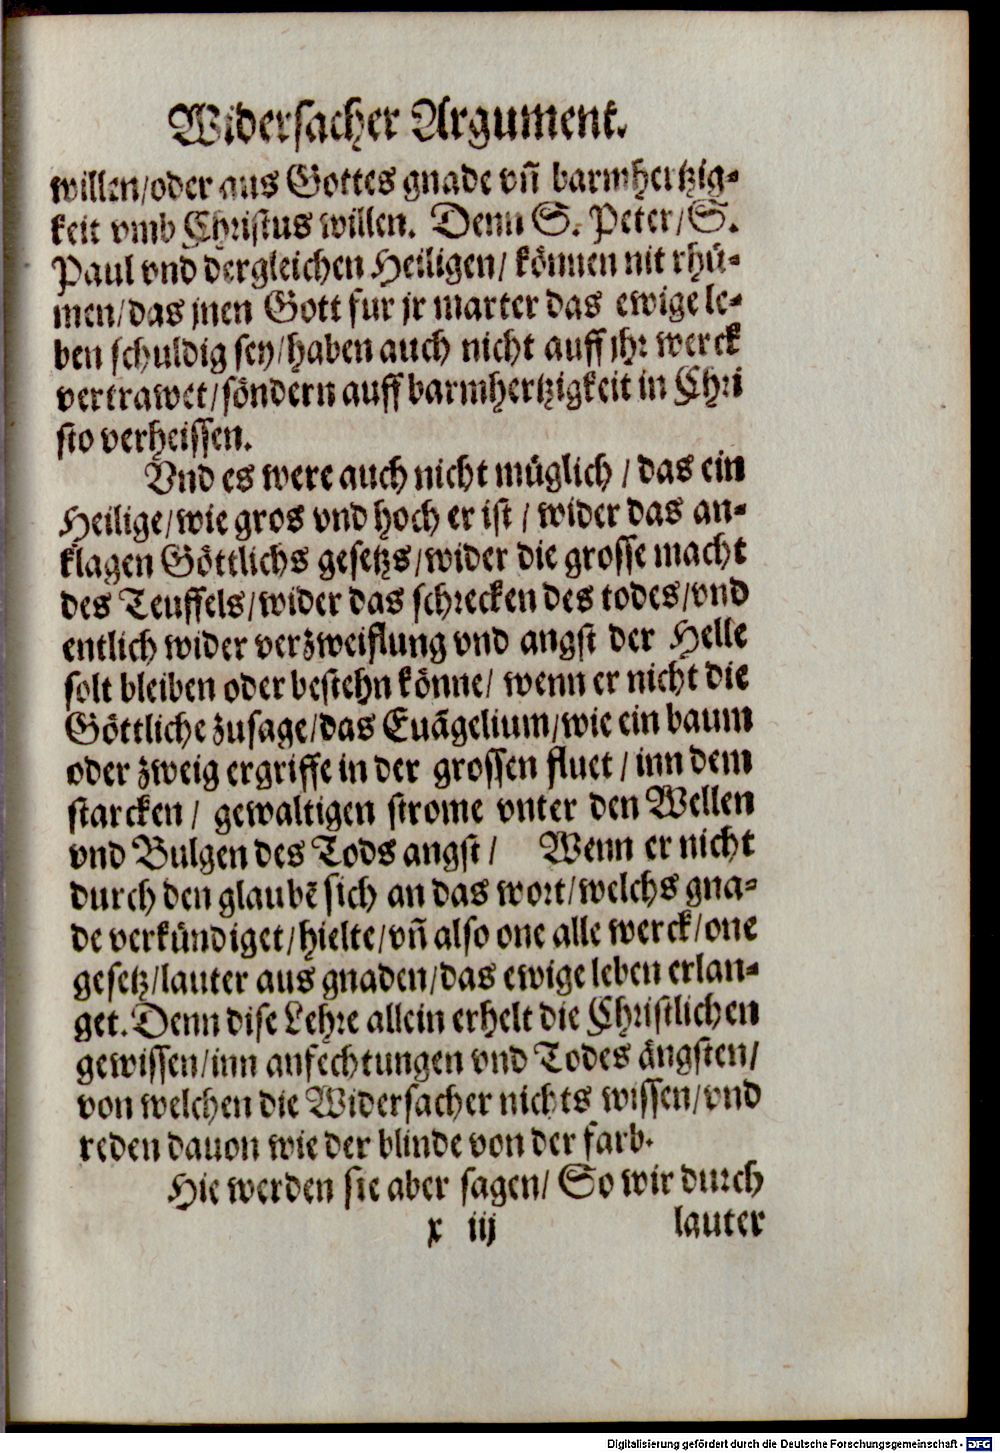 Widersacher Argument.
willen/oder aus Gottes gnade vñ barmhertzig-
keit vmb Christus willen. Denn S. Peter/S.
Paul vnd dergleichen Heiligen/ können nit rhü-
men/das jnen Gott fur jr marter das ewige le-
ben schuldig sey/haben auch nicht auff ihr werck
vertrawet/söndern auff barmhertzigkeit in Chri
sto verheissen.
Vnd es were auch nicht müglich / das ein
Heilige/wie gros vnd hoch er ist / wider das an-
klagen Göttlichs gesetzs/wider die grosse macht
des Teuffels/wider das schrecken des todes/vnd
entlich wider verzweiflung vnd angst der Helle
solt bleiben oder bestehn könne/ wenn er nicht die
Göttliche zusage/das Euãgelium/wie ein baum
oder zweig ergriffe in der grossen fluet / inn dem
starcken/ gewaltigen strome vnter den Wellen
vnd Bulgen des Tods angst/ Wenn er nicht
durch den glaubẽ sich an das wort/welchs gna-
de verkündiget/hielte/vñ also one alle werck/one
gesetz/lauter aus gnaden/das ewige leben erlan-
get. Denn dise Lehre allein erhelt die Christlichen
gewissen/inn anfechtungen vnd Todes ängsten/
von welchen die Widersacher nichts wissen/vnd
reden dauon wie der blinde von der farb.
Hie werden sie aber sagen/ So wir durch
x iij lauter
Digitalisierung gefördert durch die Deutsche Forschungsgemeinschaft - DFG